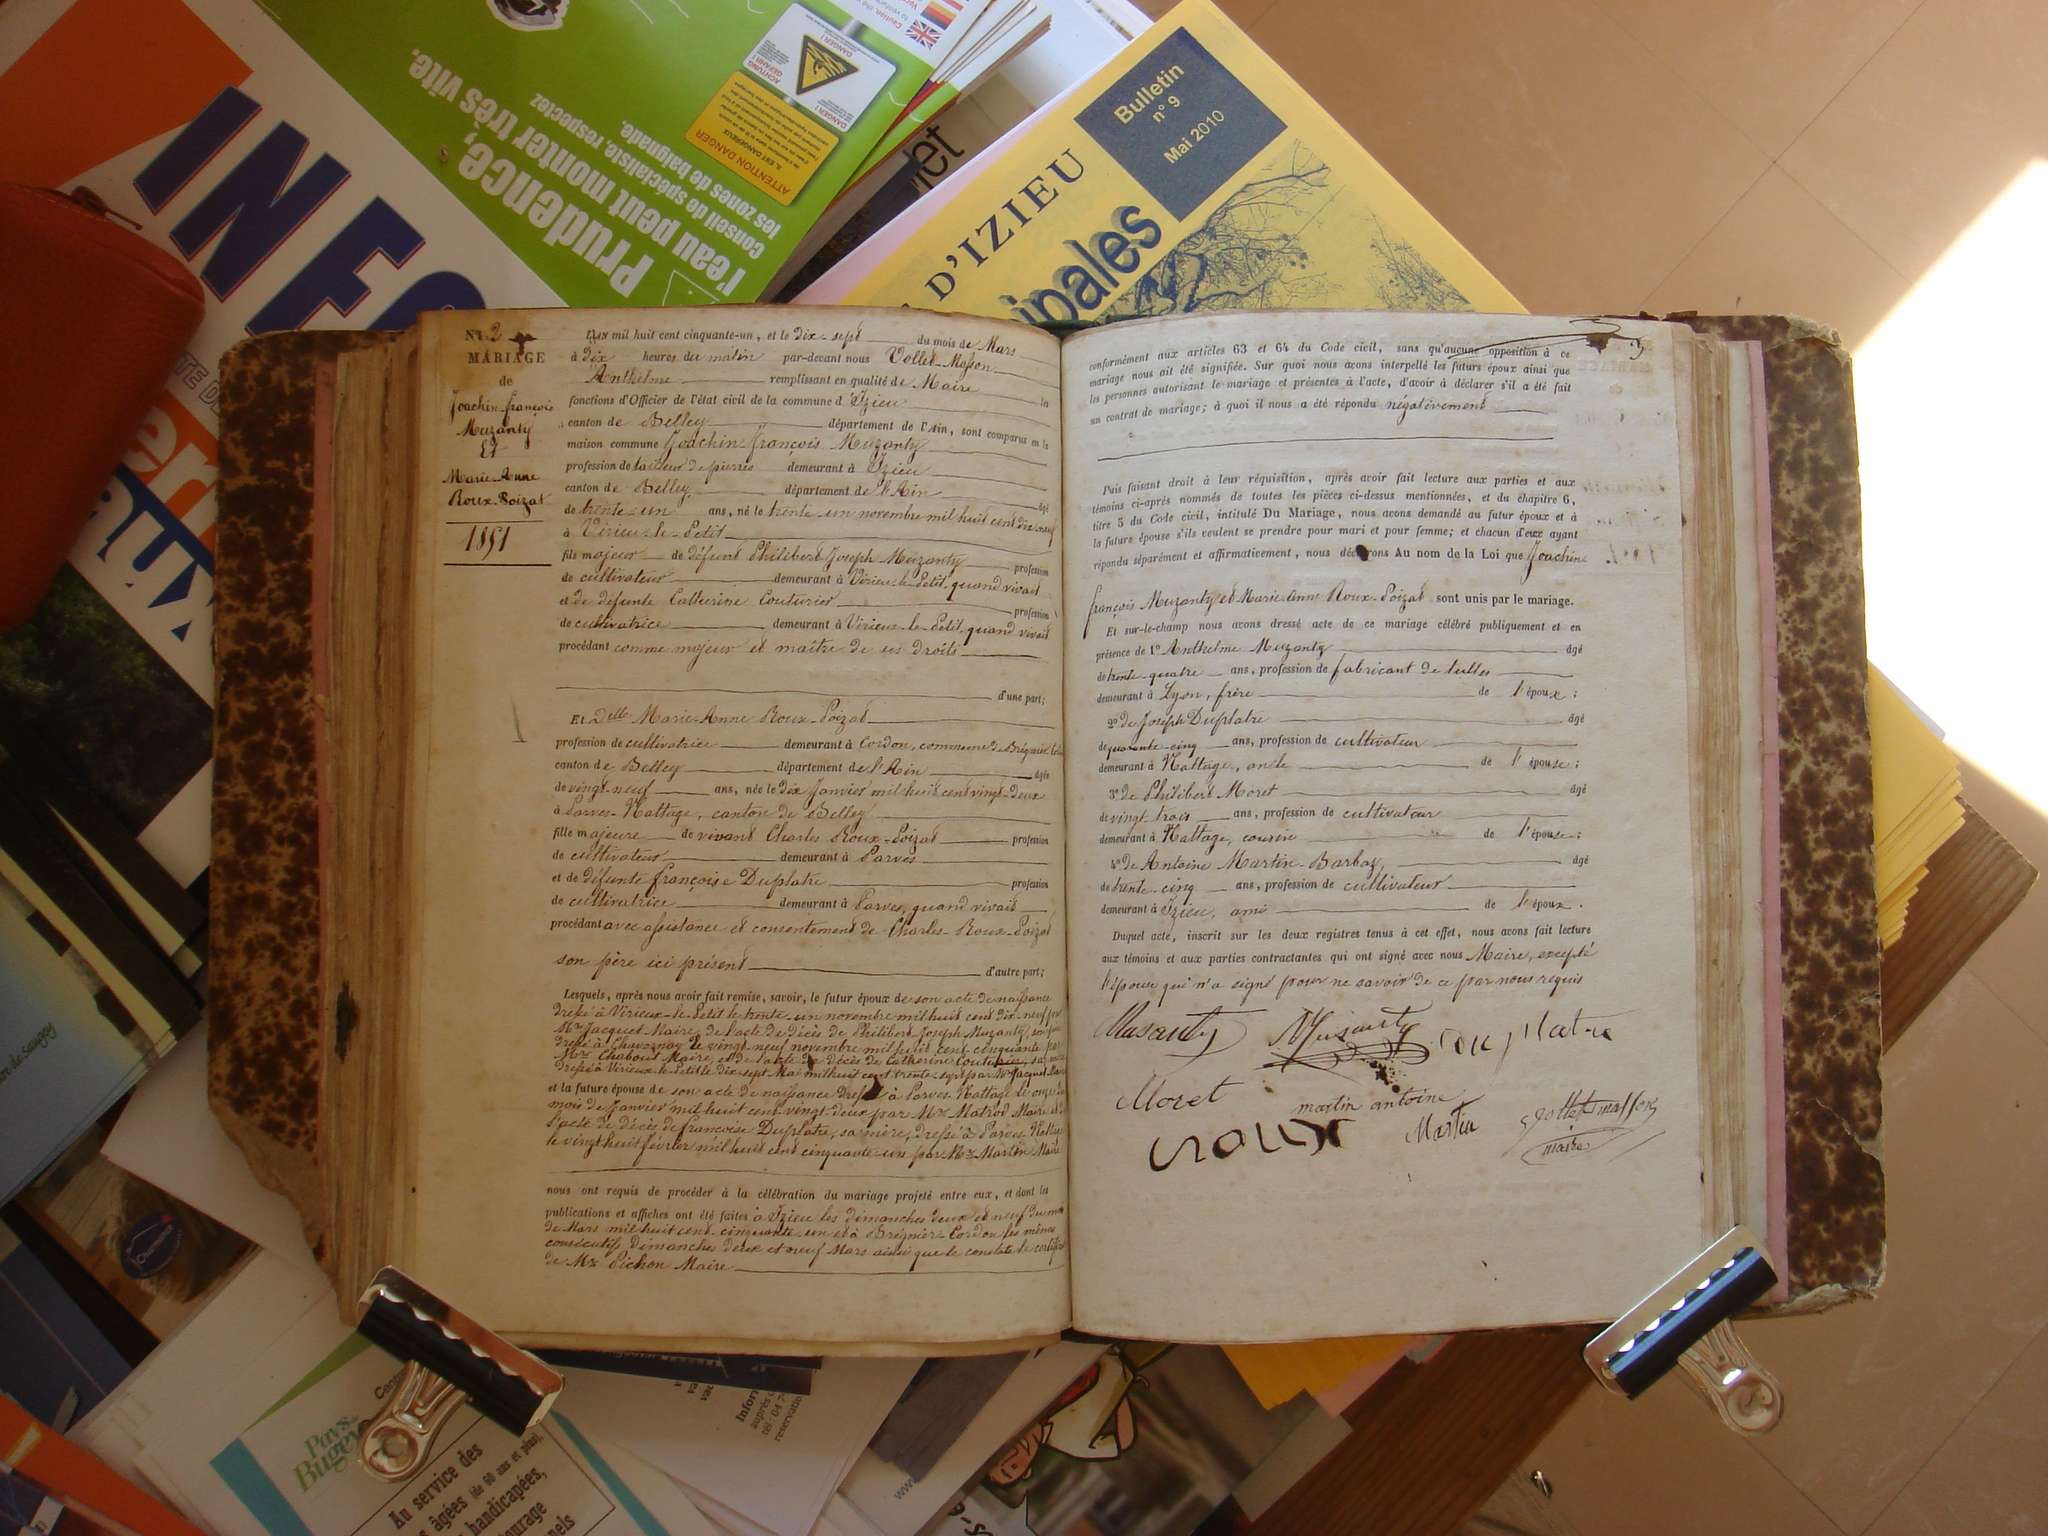 INFO
Prudence,
l'eau peut monter très vite.
conseil de spécialiste, respectez
les zones de baignade.
ATTENTION DANGER
DANGER !
Bulletin
n° 9
Mai 2010
D'IZIEU
ipales
N°. 2
MARIAGE
de
Joachin-françois
Muzanty
Et
Marie-Anne
Roux-Poizat
1851
L'an mil huit cent cinquante-un, et le dix-sept du mois de Mars
à dix heures du matin par-devant nous Vollet-Masson
Anthelme remplissant en qualité de Maire les
fonctions d'Officier de l'état civil de la commune d'Izieu
canton de Belley département de l'Ain, sont comparus en la
maison commune Joachin-françois Muzanty
profession de tailleur de pierres demeurant à Izieu
canton de Belley département de l'Ain âgé
de trente-un ans, né le trente-un novembre mil huit cent dix-neuf
à Virieu-le-Petit
fils majeur de défunt Philibert Joseph Muzanty profession
de cultivateur demeurant à Virieu-le-Petit, quand vivait
et de défunte Catherine Couturier profession
de cultivatrice demeurant à Virieu-le-Petit, quand vivait
procédant comme majeur et maître de ses droits
d'une part;
Et Delle Marie-Anne Roux-Poizat
profession de cultivatrice demeurant à Cordon, commune de Brégnier
canton de Belley département de l'Ain âgée
de vingt-neuf ans, née le dix Janvier mil huit cent vingt-deux
à Parves-Nattage, canton de Belley
fille majeure de vivant Charles Roux-Poizat profession
de cultivateur demeurant à Parves
et de défunte françoise Duplatre profession
de cultivatrice demeurant à Parves, quand vivait
procédant avec assistance et consentement de Charles-Roux-Poizat
son père ici présent d'autre part;
Lesquels, après nous avoir fait remise, savoir, le futur époux de son acte de naissance
dressé à Virieux-le-Petit le trente-un novembre mil huit cent dix-neuf par
Mr Jacquet Maire, de l'acte de décès de Philibert Joseph Muzanty, son père
dressé à Chavornay le vingt neuf novembre mil huit cent cinquante par
Mr Chaboud Maire, et de l'acte de décès de Catherine Couturier, sa mère
dressé à Virieux-le-Petit le dix-sept Mai mil huit cent trente-sept par Mr Jacquet Maire
et la future épouse de son acte de naissance dressé à Parves-Nattage le onze du
mois de Janvier mil huit cent vingt-deux par Mr Matrod Maire et de
l'acte de décès de françoise Duplatre, sa mère, dressé à Parves-Nattage
le vingt huit février mil huit cent cinquante-un par Mr Martin Maire
nous ont requis de procéder à la célébration du mariage projeté entre eux, et dont les
publications et affiches ont été faites à Izieu les dimanches deux et neuf du mois
de Mars mil huit cent cinquante-un et à Brégnier-Cordon les mêmes
consécutifs dimanches deux et neuf Mars ainsi que le constate le certificat
de Mr Pichon Maire
3
conformément aux articles 63 et 64 du Code civil, sans qu'aucune opposition à ce
mariage nous ait été signifiée. Sur quoi nous avons interpellé les futurs époux ainsi que
les personnes autorisant le mariage et présentes à l'acte, d'avoir à déclarer s'il a été fait
un contrat de mariage; à quoi il nous a été répondu négativement
Puis faisant droit à leur réquisition, après avoir fait lecture aux parties et aux
témoins ci-après nommés de toutes les pièces ci-dessus mentionnées, et du chapitre 6,
titre 5 du Code civil, intitulé Du Mariage, nous avons demandé au futur époux et à
la future épouse s'ils veulent se prendre pour mari et pour femme; et chacun d'eux ayant
répondu séparément et affirmativement, nous déclarons Au nom de la Loi que Joachin
françois Muzanty et Marie Anne Roux-Poizat sont unis par le mariage.
Et sur-le-champ nous avons dressé acte de ce mariage célébré publiquement et en
présence de 1° Anthelme Muzanty âgé
de trente-quatre ans, profession de fabricant de tulles
demeurant à Lyon, frère de l'époux;
2° de Joseph Duplatre âgé
de quarante-cinq ans, profession de cultivateur
demeurant à Nattage, oncle de l'épouse;
3° de Philibert Moret âgé
de vingt trois ans, profession de cultivateur
demeurant à Nattage, cousin de l'épouse;
4° de Antoine Martin-Barbaz, âgé
de trente-cinq ans, profession de cultivateur
demeurant à Izieu, ami de l'époux.
Duquel acte, inscrit sur les deux registres tenus à cet effet, nous avons fait lecture
aux témoins et aux parties contractantes qui ont signé avec nous Maire, excepté
l'épouse qui n'a signé pour ne savoir de ce par nous requis
Musanty Musanty Duplatre
Moret martin antoine
roux Martin Vollet masson
maire
Pays du
Bugey
Au service des
âgées (de 60 ans et plus),
handicapées,